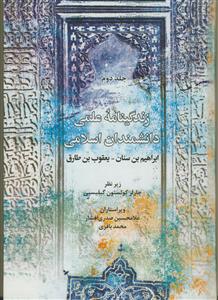 جلد دوم
زندگینامهٔ علمی
دانشمندان اسلامی
ابراهیم بن سنان - یعقوب بن طارق
زیر نظر
چارلز کولستون گیلیسپی
ویراستاران
غلامحسین صدری افشار
محمد باقری